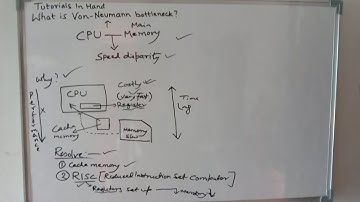 Tutorials In Hand
What is Von-Neumann bottleneck?
Main
CPU Memory
Speed disparity
Why?
Costly
CPU
(very fast)
Register
Time
Lag
Performance
Cache
memory
Memory
Slow
Resolve:
① Cache memory
② RISC [Reduced Instruction Set Computer]
Registers set up → memory ↓